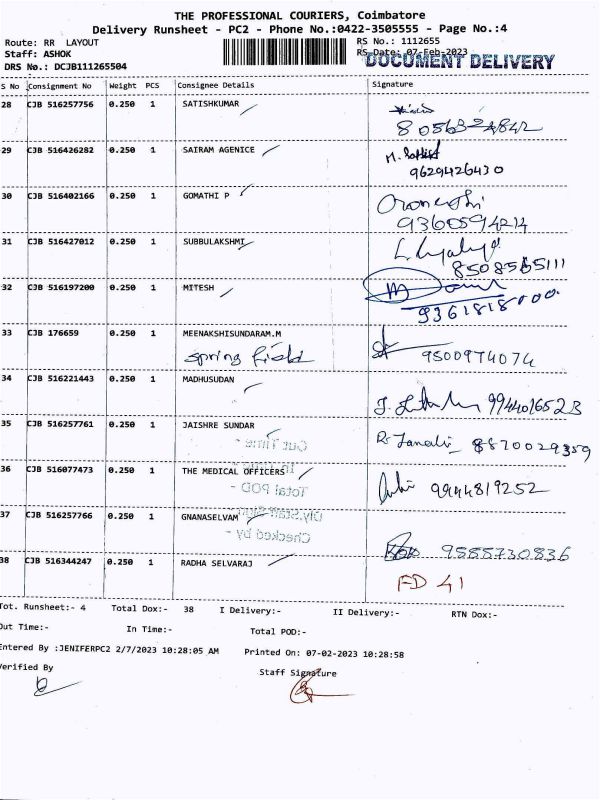 THE PROFESSIONAL COURIERS, Coimbatore
Delivery Runsheet - PC2 - Phone No.:0422-3505555 - Page No.:4
Route: RR LAYOUT
Staff: ASHOK
DRS No.: DCJB111265504
RS No.: 1112655
RS Date: 07-Feb-2023
DOCUMENT DELIVERY
S No Consignment No Weight PCS Consignee Details Signature
28 CJB 516257756 0.250 1 SATISHKUMAR
29 CJB 516426282 0.250 1 SAIRAM AGENICE
9629426430
30 CJB 516402166 0.250 1 GOMATHI P
9360594214
31 CJB 516427012 0.250 1 SUBBULAKSHMI
8508565111
32 CJB 516197200 0.250 1 MITESH
9361818000
33 CJB 176659 0.250 1 MEENAKSHISUNDARAM.M
spring field 9500974074
34 CJB 516221443 0.250 1 MADHUSUDAN
9944016523
35 CJB 516257761 0.250 1 JAISHRE SUNDAR
8870029359
Out Time -
36 CJB 516077473 0.250 1 THE MEDICAL OFFICERS
9944819252
Total POD -
37 CJB 516257766 0.250 1 GNANASELVAM
Checked by -
9585730836
38 CJB 516344247 0.250 1 RADHA SELVARAJ
FD 41
Tot. Runsheet:- 4 Total Dox:- 38 I Delivery:- II Delivery:- RTN Dox:-
Out Time:- In Time:- Total POD:-
Entered By :JENIFERPC2 2/7/2023 10:28:05 AM Printed On: 07-02-2023 10:28:58
Verified By Staff Signature